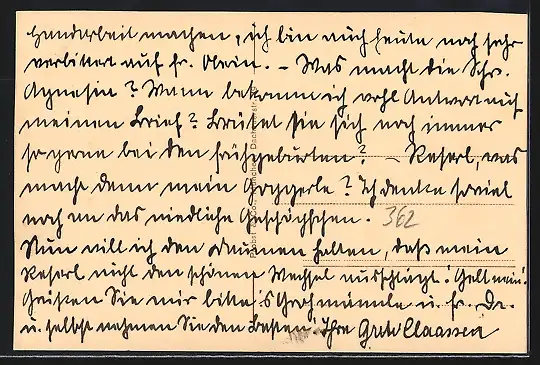 Handarbeit machen, ich bin auch heute noch sehr
verbittert auf Fr. Olein. – Was macht die Schw.
Agnesia? Wann bekomm ich wohl Antwort auf
meinen Brief? Brütet sie sich noch immer
so gern bei den Frühgeburten? – Reserl, was
macht denn mein Goggerle? Ich denke soviel
noch an das niedliche Geschöpfchen.
362
Nun will ich den Daumen halten, daß mein
Reserl nicht den schönen Wechsel ausschlägt! Gelt mein!
Grüßen Sie mir bitte 's Grohmännle u. Fr. Dr.
u. selbst nehmen Sie den Besten. Ihre Grete Claassen